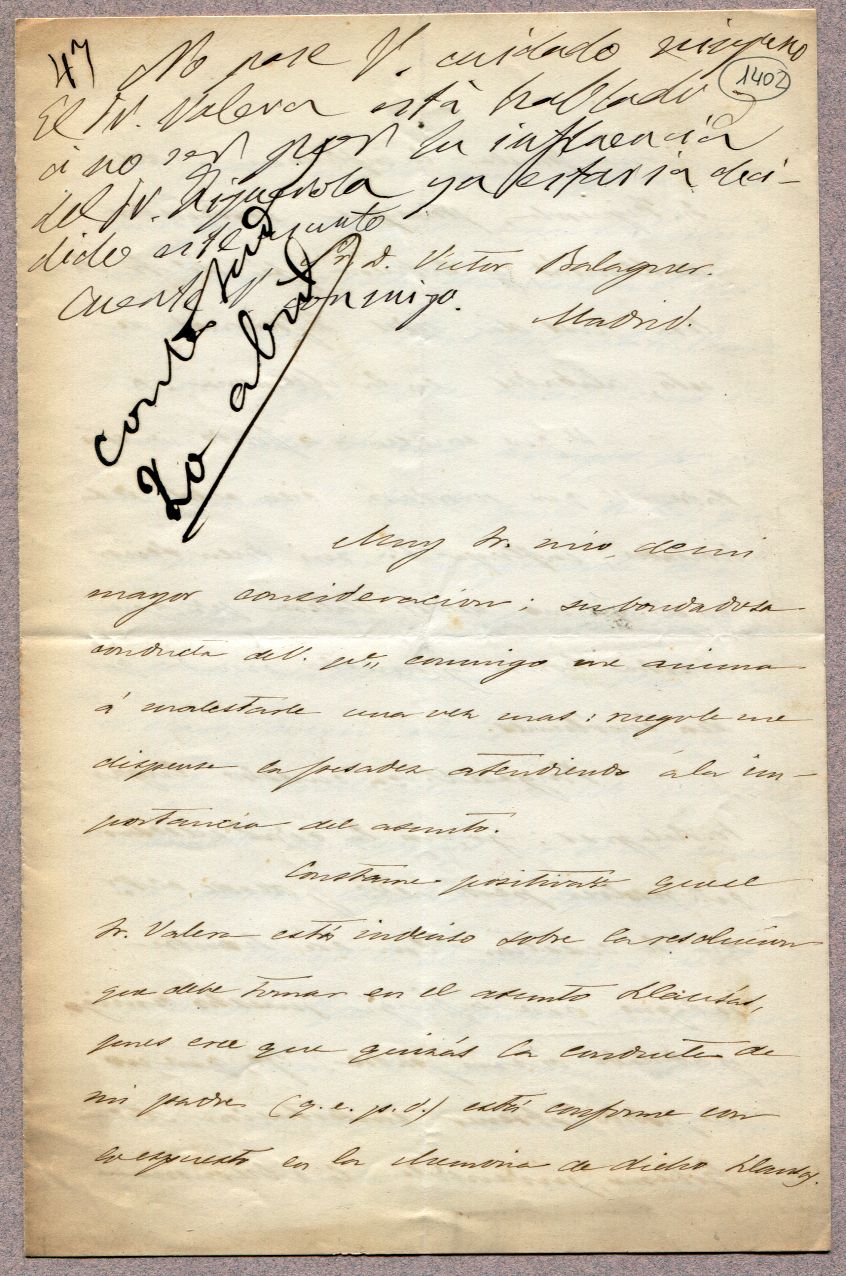 47
1402
No pase V. cuidado ninguno
El Sr. Valera está hablado
á no ser por la influencia
del Sr. Figuerola ya estaria deci-
dido este asunto
Cuente V. conmigo.
contestad
20 abril
Sr. D. Victor Balaguer.
Madrid.
Muy Sr. mio, de mi
mayor consideracion; su bondadosa
conducta de V. pª conmigo me anima
á molestarle una vez mas: ruegole me
dispense la pesadez atendiendo á la im-
portancia del asunto.
Constame positivate que el
Sr. Valera está indeciso sobre la resolucion
que debe tomar en el asunto Llausás,
pues cree que quizás la conducta de
mi padre (q. e. p. d.) está conforme con
lo espuesto en la Memoria de dicho Llausás.